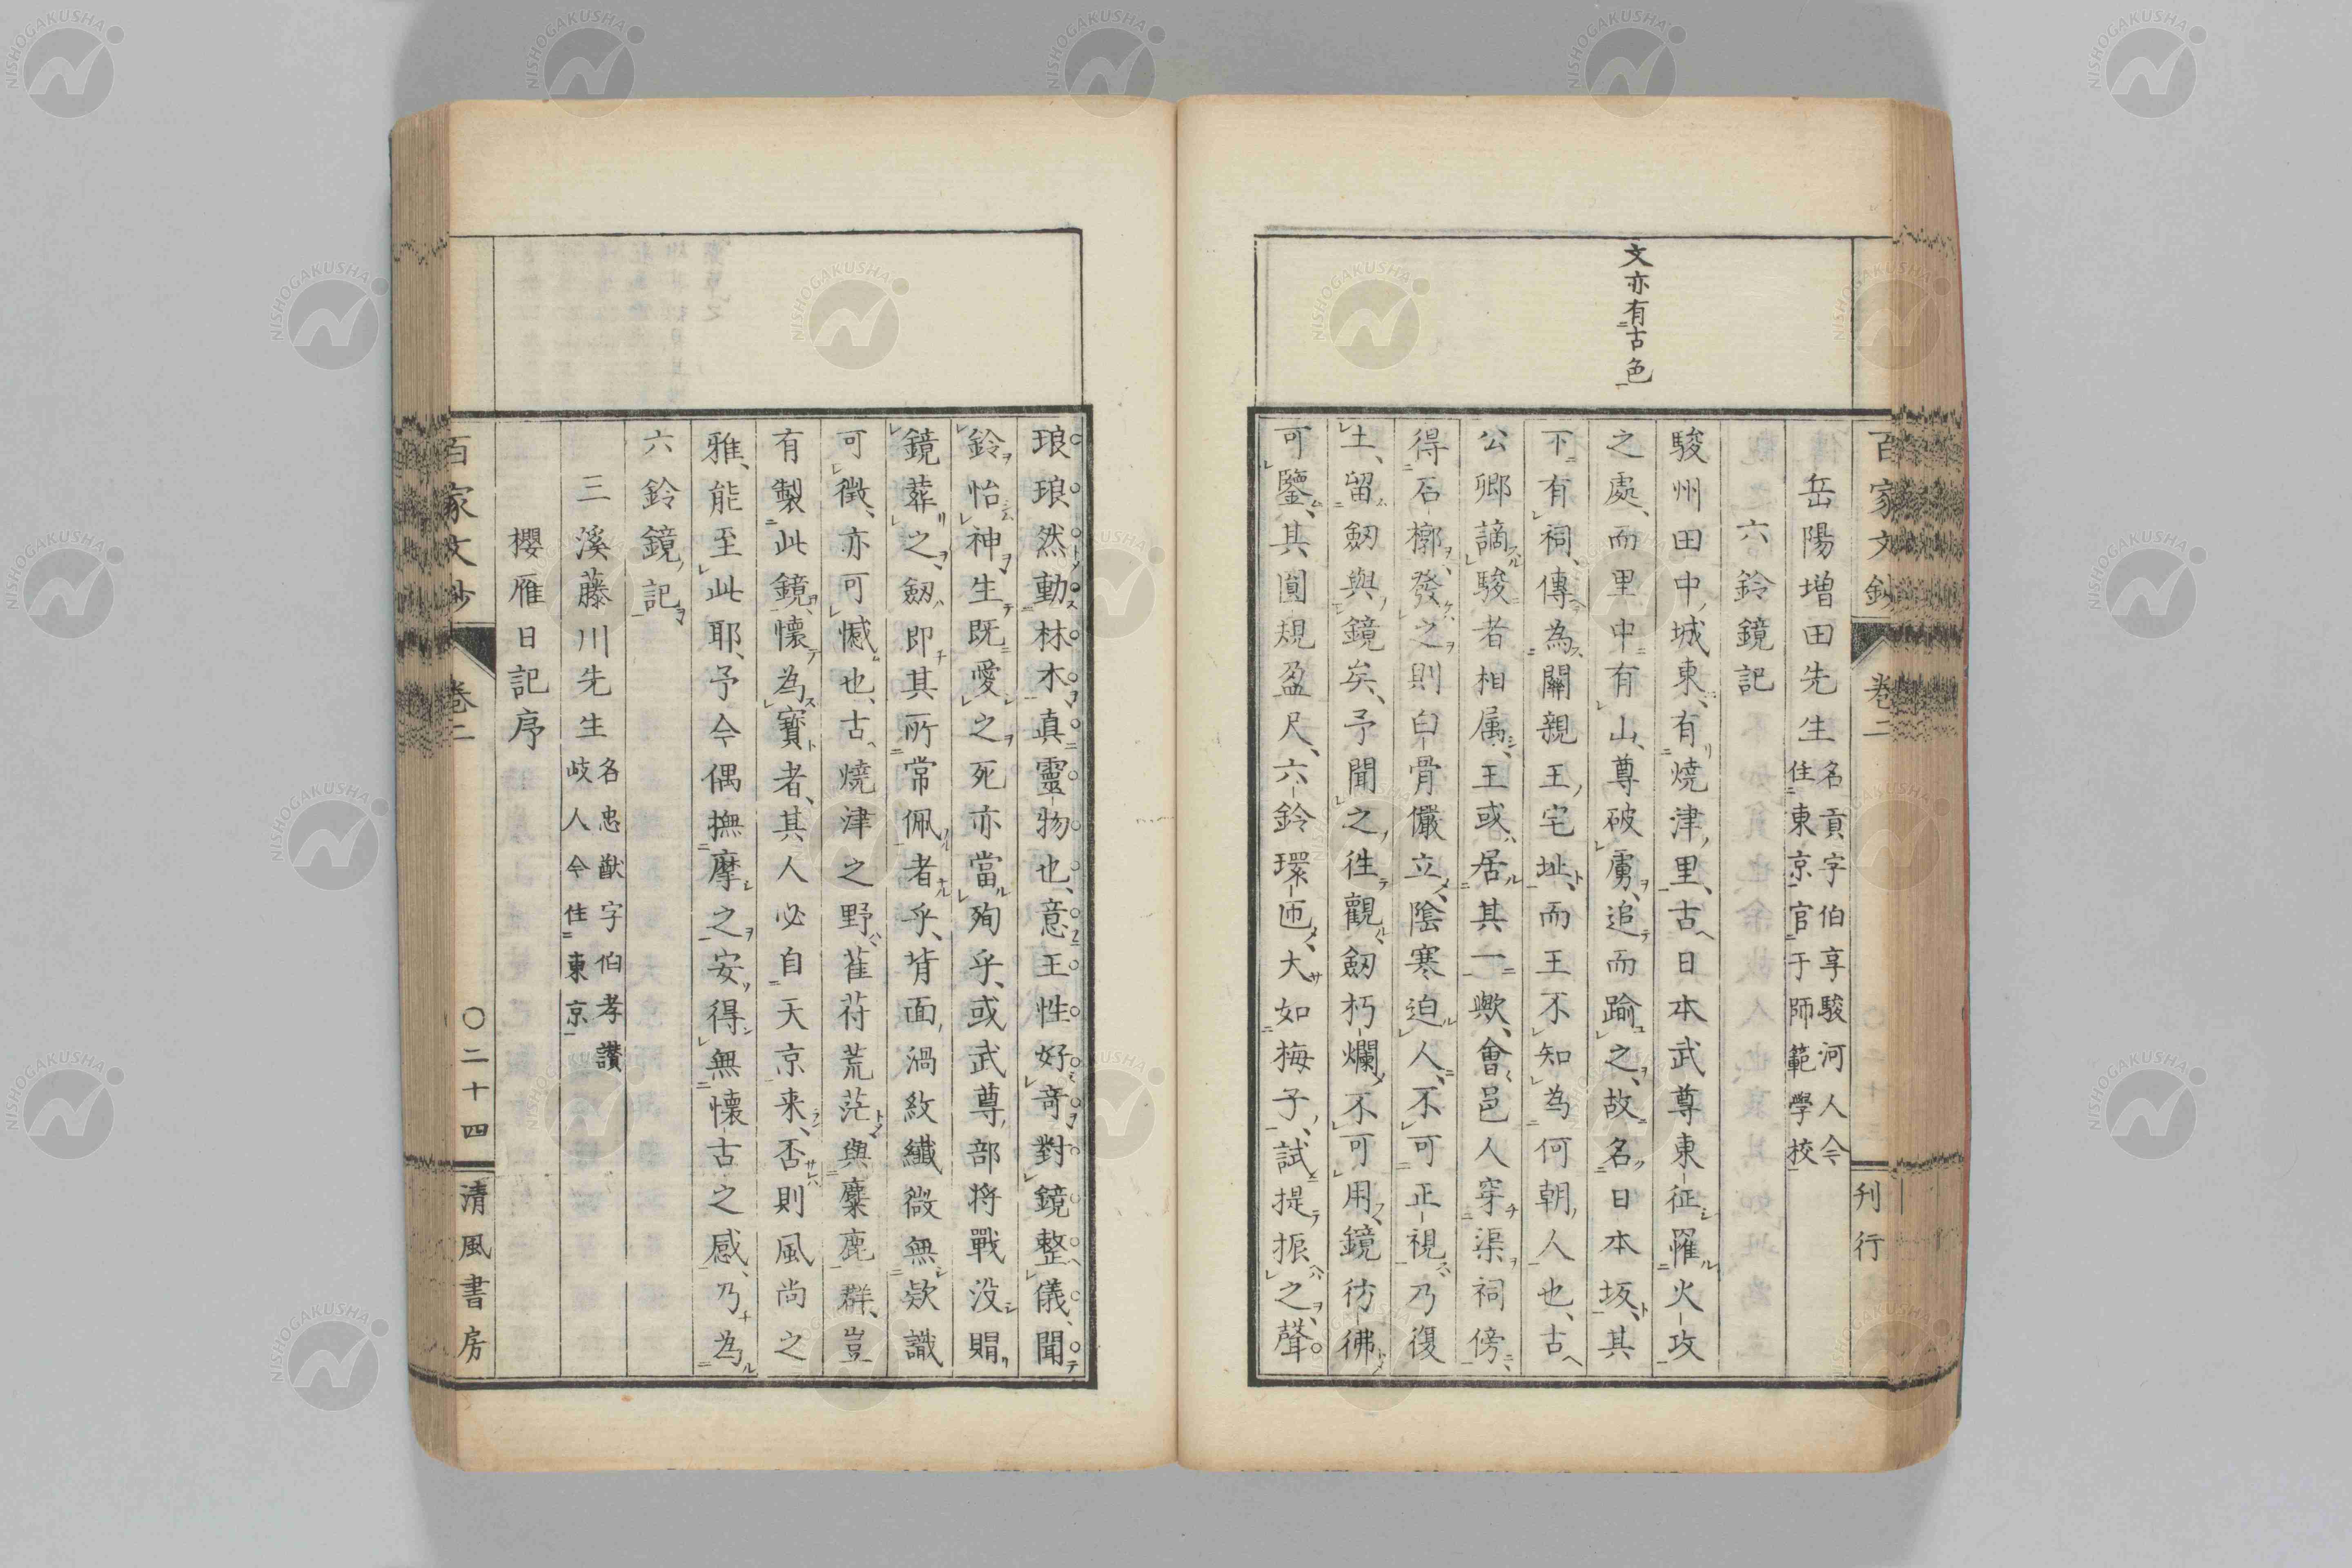 文亦有古色
百家文鈔 巻二 刊行
岳陽増田先生 名貢字伯享駿河人今住東京官于師範學校
六鈴鏡記
駿州田中城東有燒津里古日本武尊東征罹火攻
之處而里中有山尊破虜追而踰之故名日本坂其
下有祠傳為關親王宅址而王不知為何朝人也古
公卿謫駿者相属王或居其一歟會邑人穿渠祠傍
得石槨發之則白骨儼立陰寒迫人不可正視乃復
土留劒與鏡矣予聞之徃觀劒朽爛不可用鏡彷彿
可鑒其圓規盈尺六鈴環匝大如梅子試提振之聲
琅琅然動林木真靈物也意王性好奇對鏡整儀聞
鈴怡神生既愛之死亦當殉乎或武尊部將戰没賵
鏡葬之劒即其所常佩者乎背面渦紋纖微無欵識
可徴亦可憾也古燒津之野萑苻荒茫與麋鹿群豈
有製此鏡懷為寶者其人必自天京来否則風尚之
雅能至此耶予今偶撫摩之安得無懷古之感乃為
六鈴鏡記
三溪藤川先生 名忠猷字伯孝讃岐人今住東京
櫻雁日記序
百家文鈔 巻二 〇二十四 清風書房
NISHOGAKUSHA